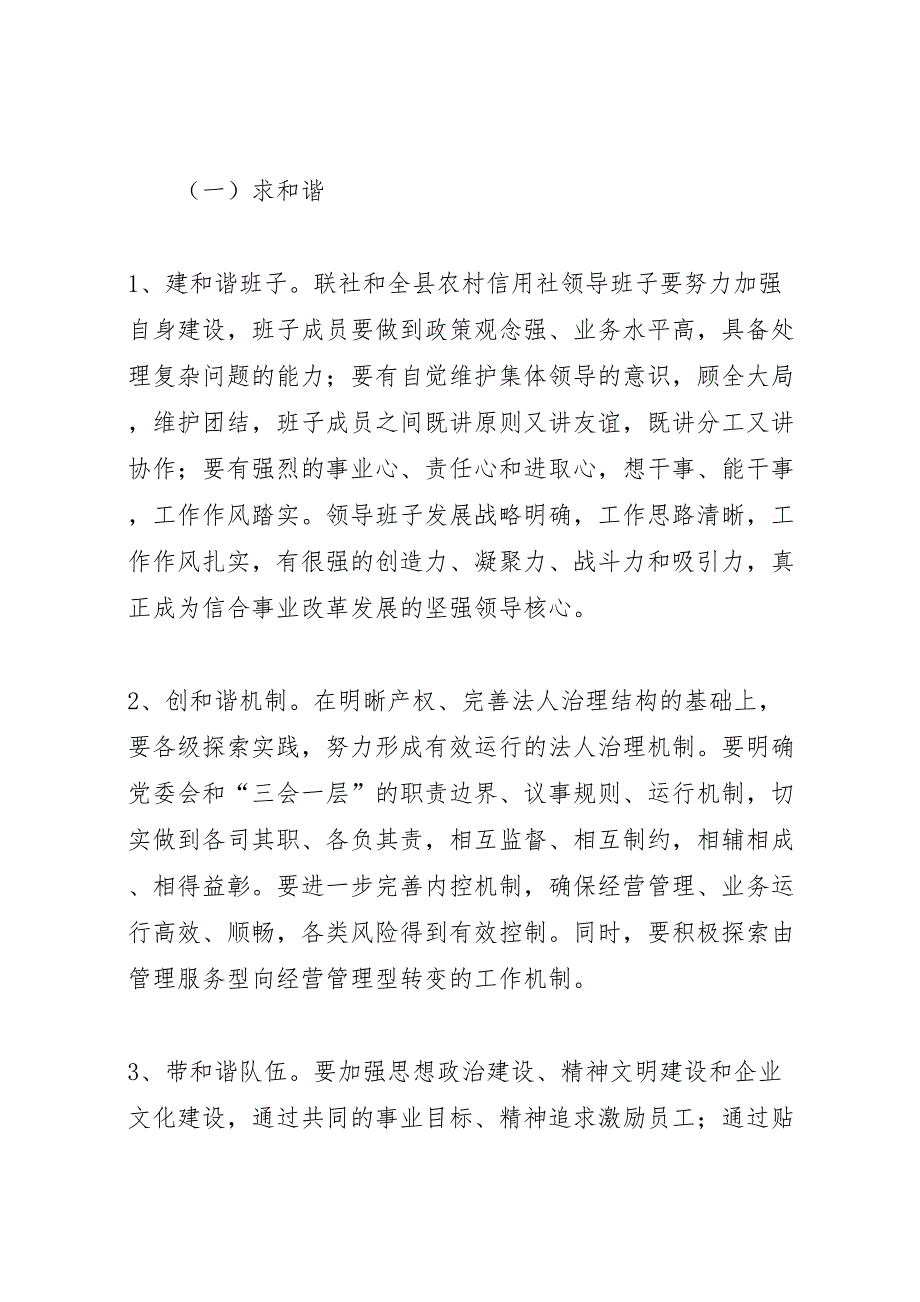 （一）求和谐
1、建和谐班子。联社和全县农村信用社领导班子要努力加强
自身建设，班子成员要做到政策观念强、业务水平高，具备处
理复杂问题的能力；要有自觉维护集体领导的意识，顾全大局
，维护团结，班子成员之间既讲原则又讲友谊，既讲分工又讲
协作；要有强烈的事业心、责任心和进取心，想干事、能干事
，工作作风踏实。领导班子发展战略明确，工作思路清晰，工
作作风扎实，有很强的创造力、凝聚力、战斗力和吸引力，真
正成为信合事业改革发展的坚强领导核心。
2、创和谐机制。在明晰产权、完善法人治理结构的基础上，
要各级探索实践，努力形成有效运行的法人治理机制。要明确
党委会和“三会一层”的职责边界、议事规则、运行机制，切
实做到各司其职、各负其责，相互监督、相互制约，相辅相成
、相得益彰。要进一步完善内控机制，确保经营管理、业务运
行高效、顺畅，各类风险得到有效控制。同时，要积极探索由
管理服务型向经营管理型转变的工作机制。
3、带和谐队伍。要加强思想政治建设、精神文明建设和企业
文化建设，通过共同的事业目标、精神追求激励员工；通过贴